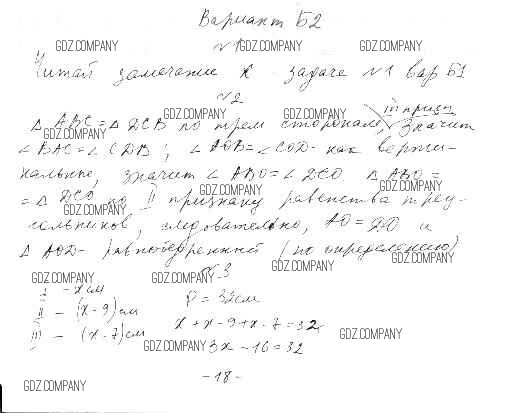 Вариант Б2
№1
GDZ.COMPANY GDZ.COMPANY GDZ.COMPANY
Читай замечание к задаче №1 вар Б1
№2
GDZ.COMPANY GDZ.COMPANY III призн
Δ ABC = Δ DCB по трем сторонам, Значит
GDZ.COMPANY
∠ BAC = ∠ CDB; ∠ AOB = ∠ COD - как верти-
кальные, значит ∠ ABO = ∠ DCO Δ ABO =
GDZ.COMPANY GDZ.COMPANY
= Δ DCO по II признаку равенства треу-
GDZ.COMPANY
гольников, следовательно, AO = DO и
Δ AOD - равнобедренный (по определению)
GDZ.COMPANY GDZ.COMPANY
№3
GDZ.COMPANY GDZ.COMPANY
I - x см
P = 32 см
II - (x - 9) см
III - (x - 7) см
x + x - 9 + x - 7 = 32
GDZ.COMPANY
GDZ.COMPANY 3x - 16 = 32
- 18 -
GDZ.COMPANY